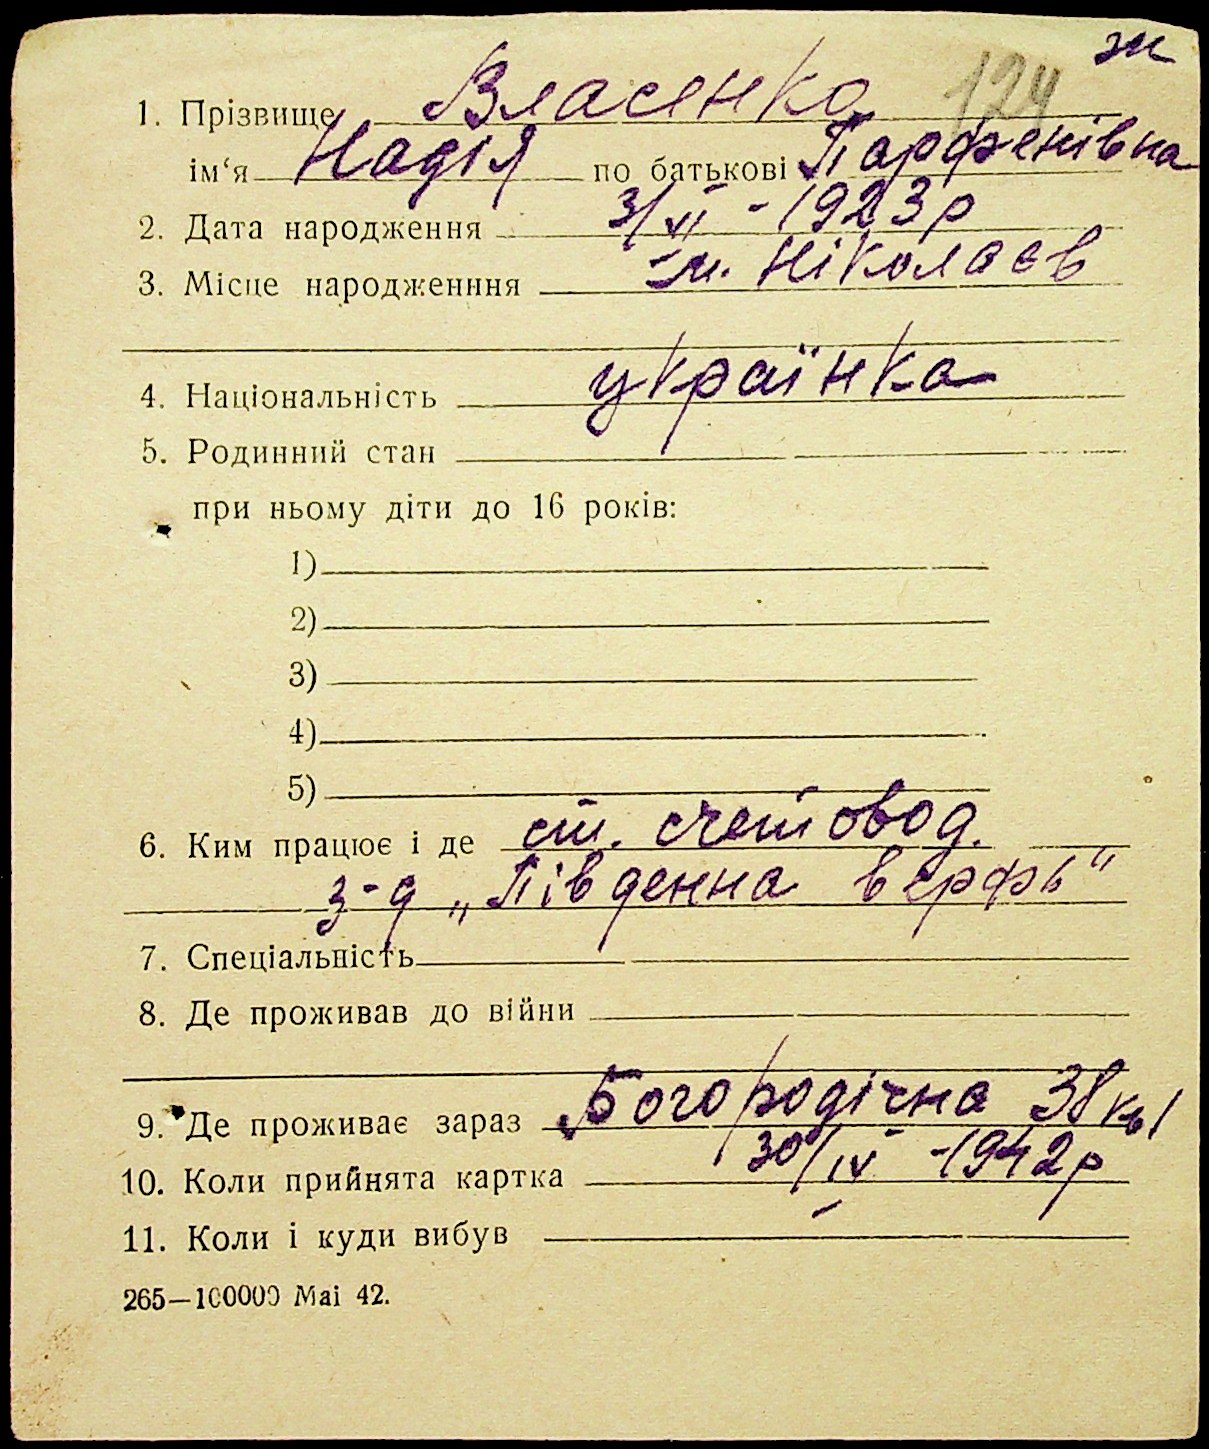 ж
124
1. Прізвище Власенко
ім‘я Надія по батькові Парфенівна
2. Дата народження 3/VI - 1923 р
3. Місце народженння м. Ніколаєв
4. Національність українка
5. Родинний стан
при ньому діти до 16 років:
1)
2)
3)
4)
5)
6. Ким працює і де ст. счетовод.
з-д „Південна верфь“
7. Спеціальність
8. Де проживав до війни
9. Де проживає зараз Богородічна 38 кв 1
10. Коли прийнята картка 30/IV - 1942 р
11. Коли і куди вибув
265—100000 Маі 42.